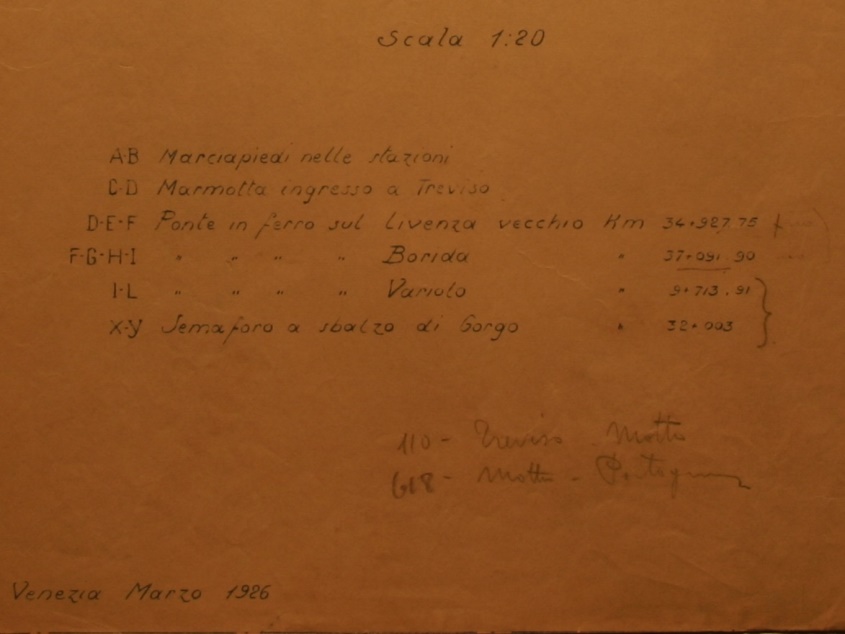 Scala 1:20
A-B Marciapiedi nelle stazioni
C-D Marmotta ingresso a Treviso
D-E-F Ponte in ferro sul Livenza vecchio Km 34+927.75
F-G-H-I " " " " Borida " 37+091.90
I-L " " " " Variolo " 9+713.91
X-Y Semaforo a sbalzo di Gorgo " 32+003
110 - Treviso - Motta
618 - Motta -
Venezia Marzo 1926